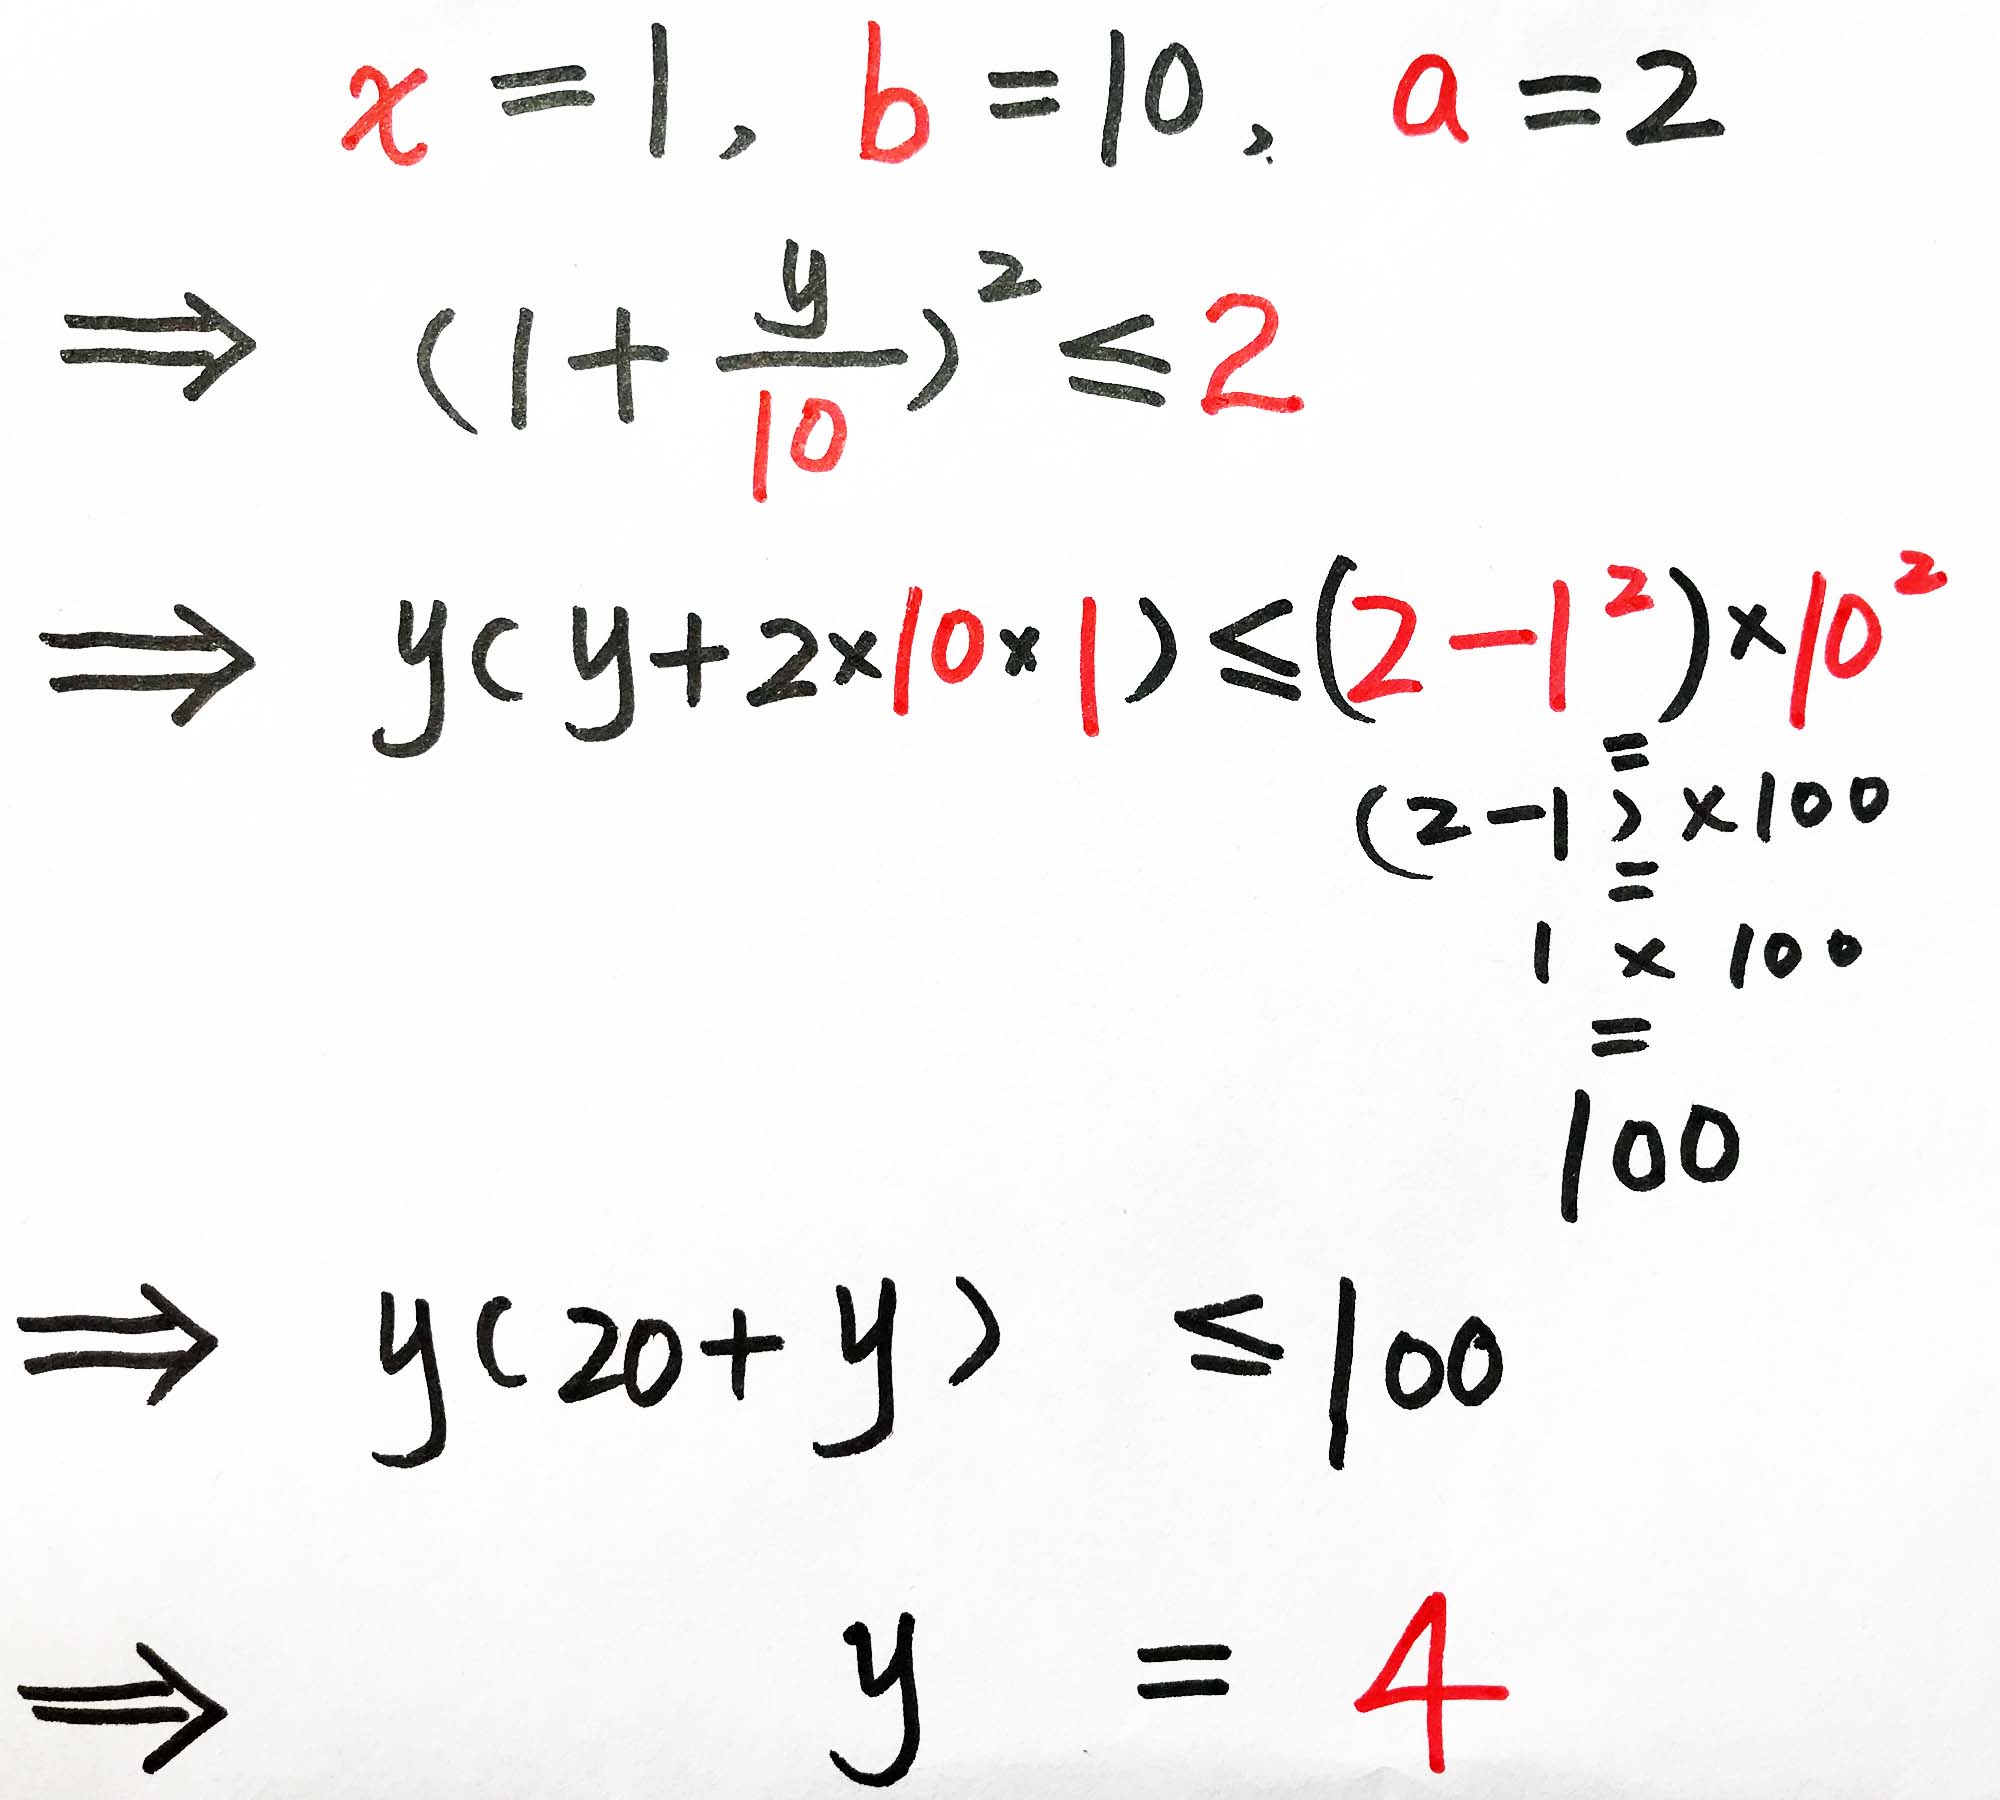 x = 1, b = 10, a = 2
⇒ (1 + y/10)² ≤ 2
⇒ y(y + 2×10×1) ≤ (2 - 1²) × 10²
=
(2 - 1) × 100
=
1 × 100
=
100
⇒ y(20 + y) ≤ 100
⇒ y = 4